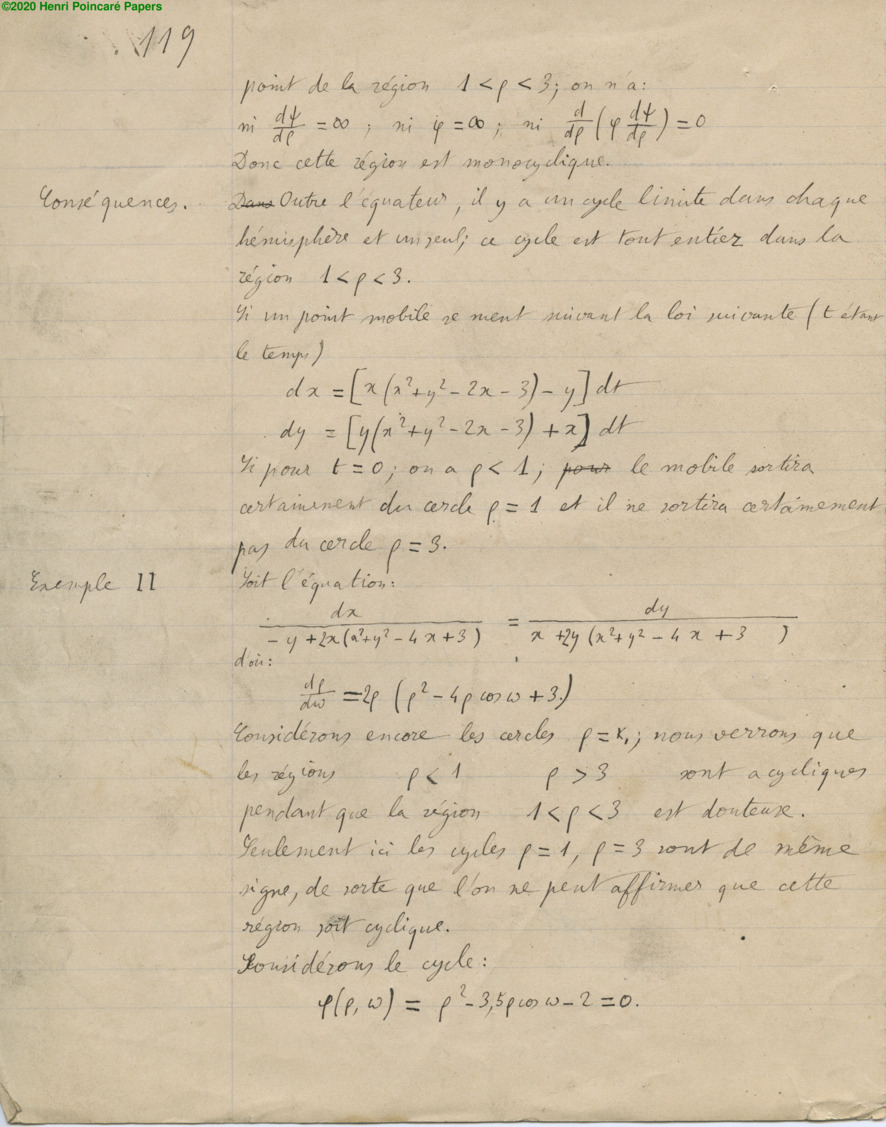 ©2020 Henri Poincaré Papers
119
point de la région 1 < ρ < 3; on n'a:
ni dψ/dρ = ∞ ; ni φ = ∞ ; ni d/dρ (φ dψ/dρ) = 0
Donc cette région est monocyclique.
Conséquences. Dans Outre l'équateur, il y a un cycle limite dans chaque
hémisphère et un seul; ce cycle est tout entier dans la
région 1 < ρ < 3.
Si un point mobile se meut suivant la loi suivante (t étant
le temps)
dx = [x(x²+y²-2x-3)-y] dt
dy = [y(x²+y²-2x-3)+x] dt
Si pour t = 0; on a ρ < 1; pour le mobile sortira
certainement du cercle ρ = 1 et il ne sortira certainement
pas du cercle ρ = 3.
Exemple II Soit l'équation:
dx / (-y+2x(x²+y²-4x+3)) = dy / (x+2y(x²+y²-4x+3))
d'où:
dρ/dω = 2ρ (ρ²-4ρ cos ω+3)
Considérons encore les cercles ρ = K, ; nous verrons que
les régions ρ < 1 ρ > 3 sont acycliques
pendant que la région 1 < ρ < 3 est douteuse.
Seulement ici les cycles ρ = 1, ρ = 3 sont de même
signe, de sorte que l'on ne peut affirmer que cette
région soit cyclique.
Considérons le cycle:
φ(ρ, ω) = ρ²-3,5ρ cos ω-2 = 0.